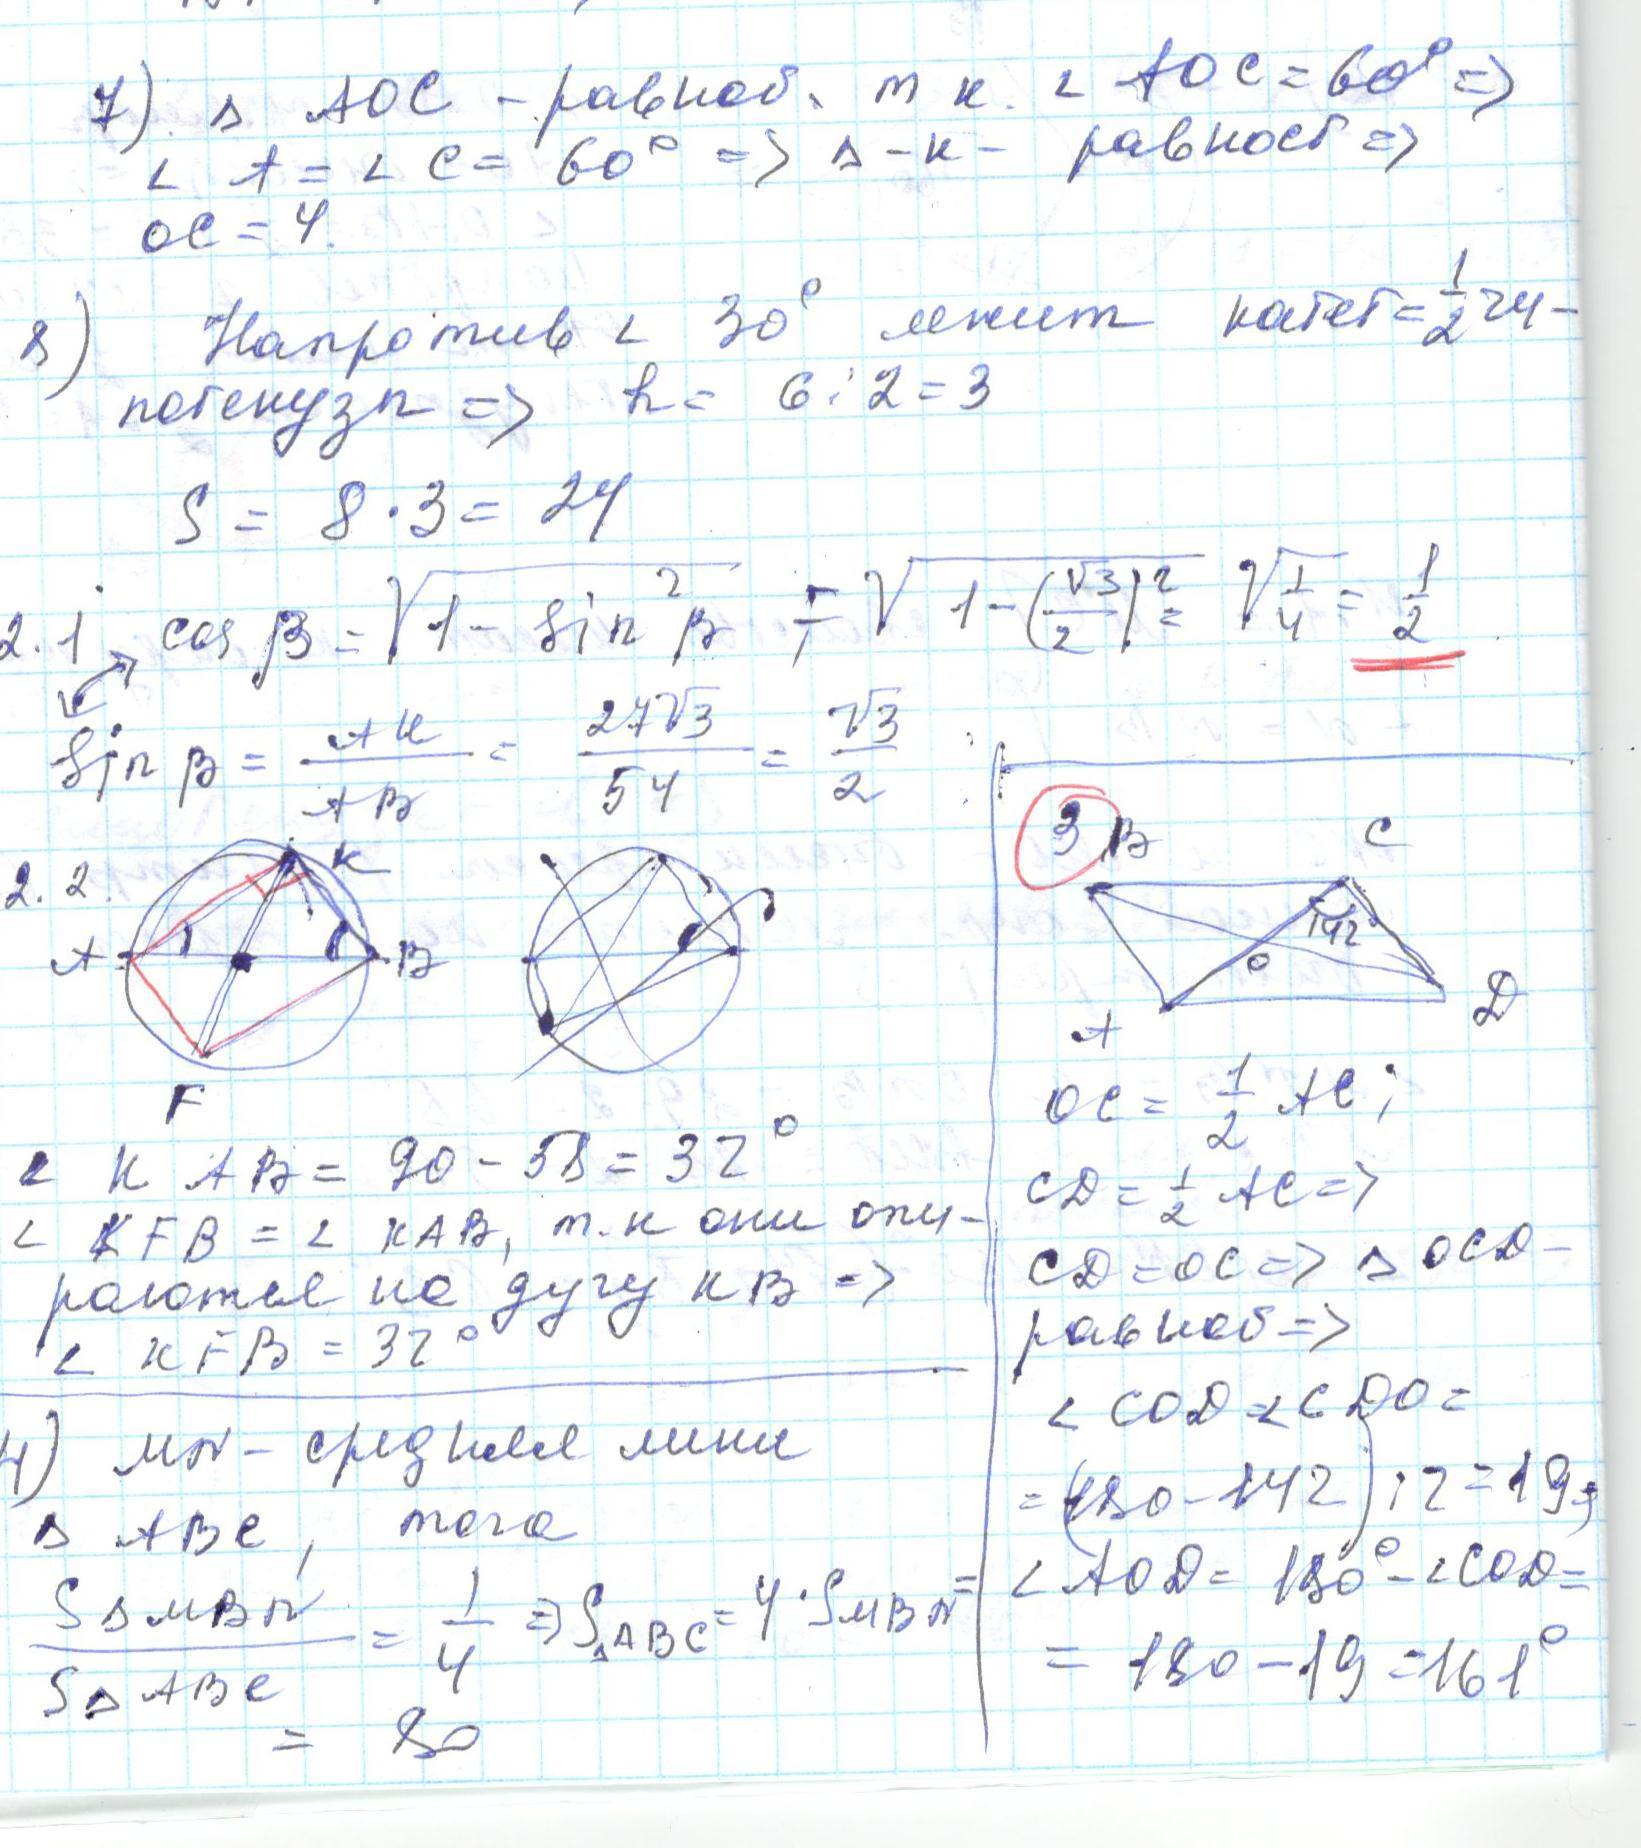 7). △ АОС – равноб. т к. ∠ АОС = 60° =>
∠ А = ∠ С = 60° => △ -к- равност =>
ОС = 4.
8) Напротив ∠ 30° лежит катет = 1/2 ги-
потенузы => h = 6 : 2 = 3
S = 8 · 3 = 24
2.1 cos β = √(1 - sin² β) = √(1 - (√3/2)²) = √(1/4) = 1/2
sin β = АК/АВ = 27√3/54 = √3/2
2.2.
К
А
В
F
∠ К АВ = 90 - 58 = 32°
∠ KFB = ∠ КАВ, т.к они опи-
раются на дугу КВ =>
∠ KFB = 32°
4) MN – средняя лини
△ АВС, тога
S△MBN/S△ABC = 1/4 => S△ABC = 4 · SMBN =
= 80
3
В
С
142
О
А
D
ОС = 1/2 АС;
CD = 1/2 АС =>
CD = ОС => △ OCD –
равноб =>
∠ COD = ∠ CDO =
= (180 - 142) : 2 = 19;
∠ AOD = 180° - ∠COD =
= 180 - 19 = 161°